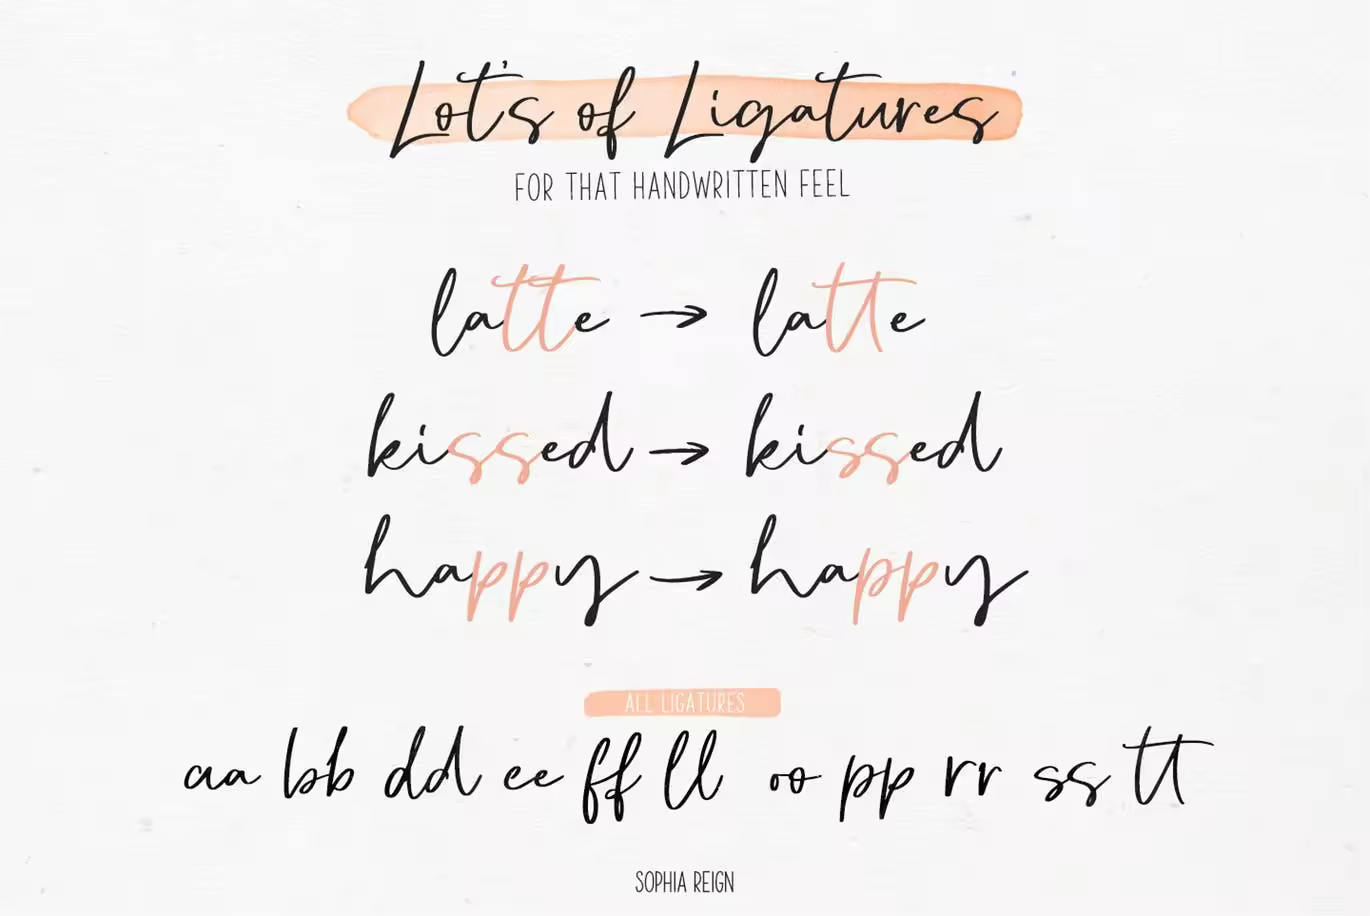 Lot's of Ligatures
FOR THAT HANDWRITTEN FEEL
latte → latte
kissed → kissed
happy → happy
ALL LIGATURES
aa bb dd ee ff ll oo pp rr ss tt
SOPHIA REIGN